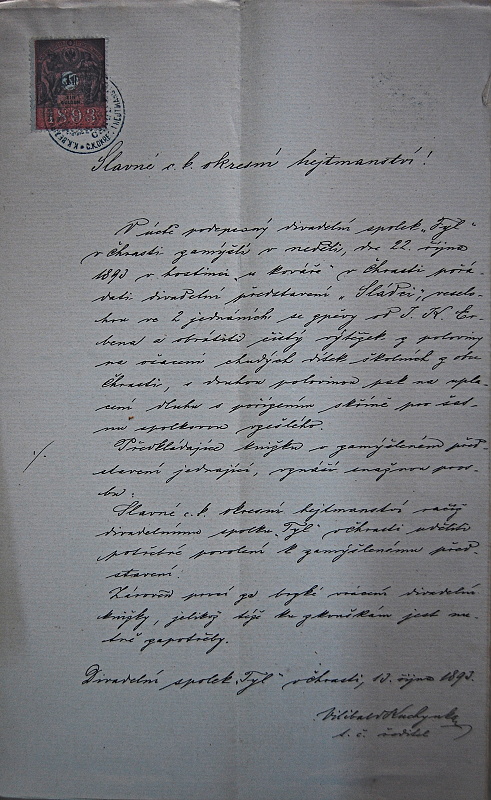 1893
Slavné c. k. okresní hejtmanství!
V úctě podepsaný divadelní spolek „Tyl"
v Chrasti zamýšlí v neděli, dne 22. října
1893 v hostinci „u kováře" v Chrasti pořá-
dati divadelní představení „Sládci", veselo-
hru ve 2 jednáních se zpěvy od J. K. Er-
bena a obrátiti čistý výtěžek z poloviny
na ošacení chudých dítek školních z obce
Chrasti, s druhou polovinou pak na spla-
cení dluhu s pořízením skříně pro šat-
nu spolkovou vzešlého.
Předkládajíce knížku o zamýšleném před-
stavení jednající, vznáší snažnou pros-
bu:
Slavné c. k. okresní hejtmanství račiž
divadelnímu spolku „Tyl" v Chrasti uděliti
potřebné povolení k zamýšlenému před-
stavení.
Zároveň prosí za brzké vrácení divadelní
knížky, jelikož též ku zkouškám jest nu-
tně zapotřebí.
Divadelní spolek „Tyl" v Chrasti, 13. října 1893.
Vilibald
t. č. ředitel